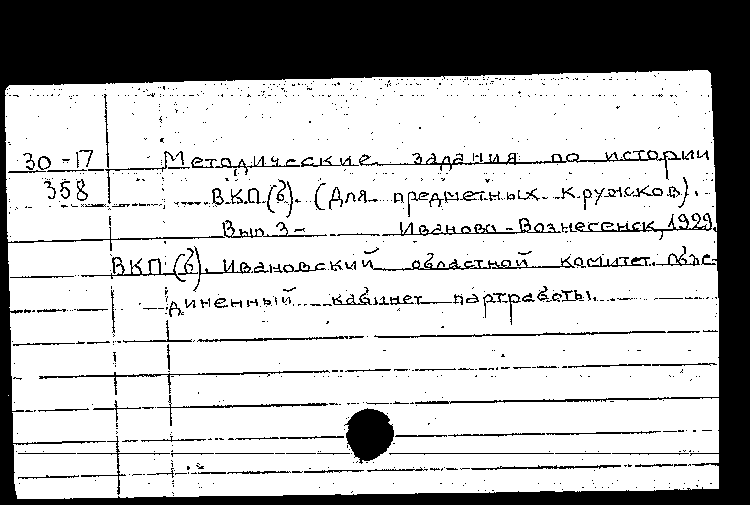 30-17 Методические задания по истории
358 ВКП(б). (Для предметных кружков).
Вып. 3- Иваново-Вознесенск, 1929.
ВКП(б). Ивановский областной комитет. Объе-
диненный кабинет партработы.